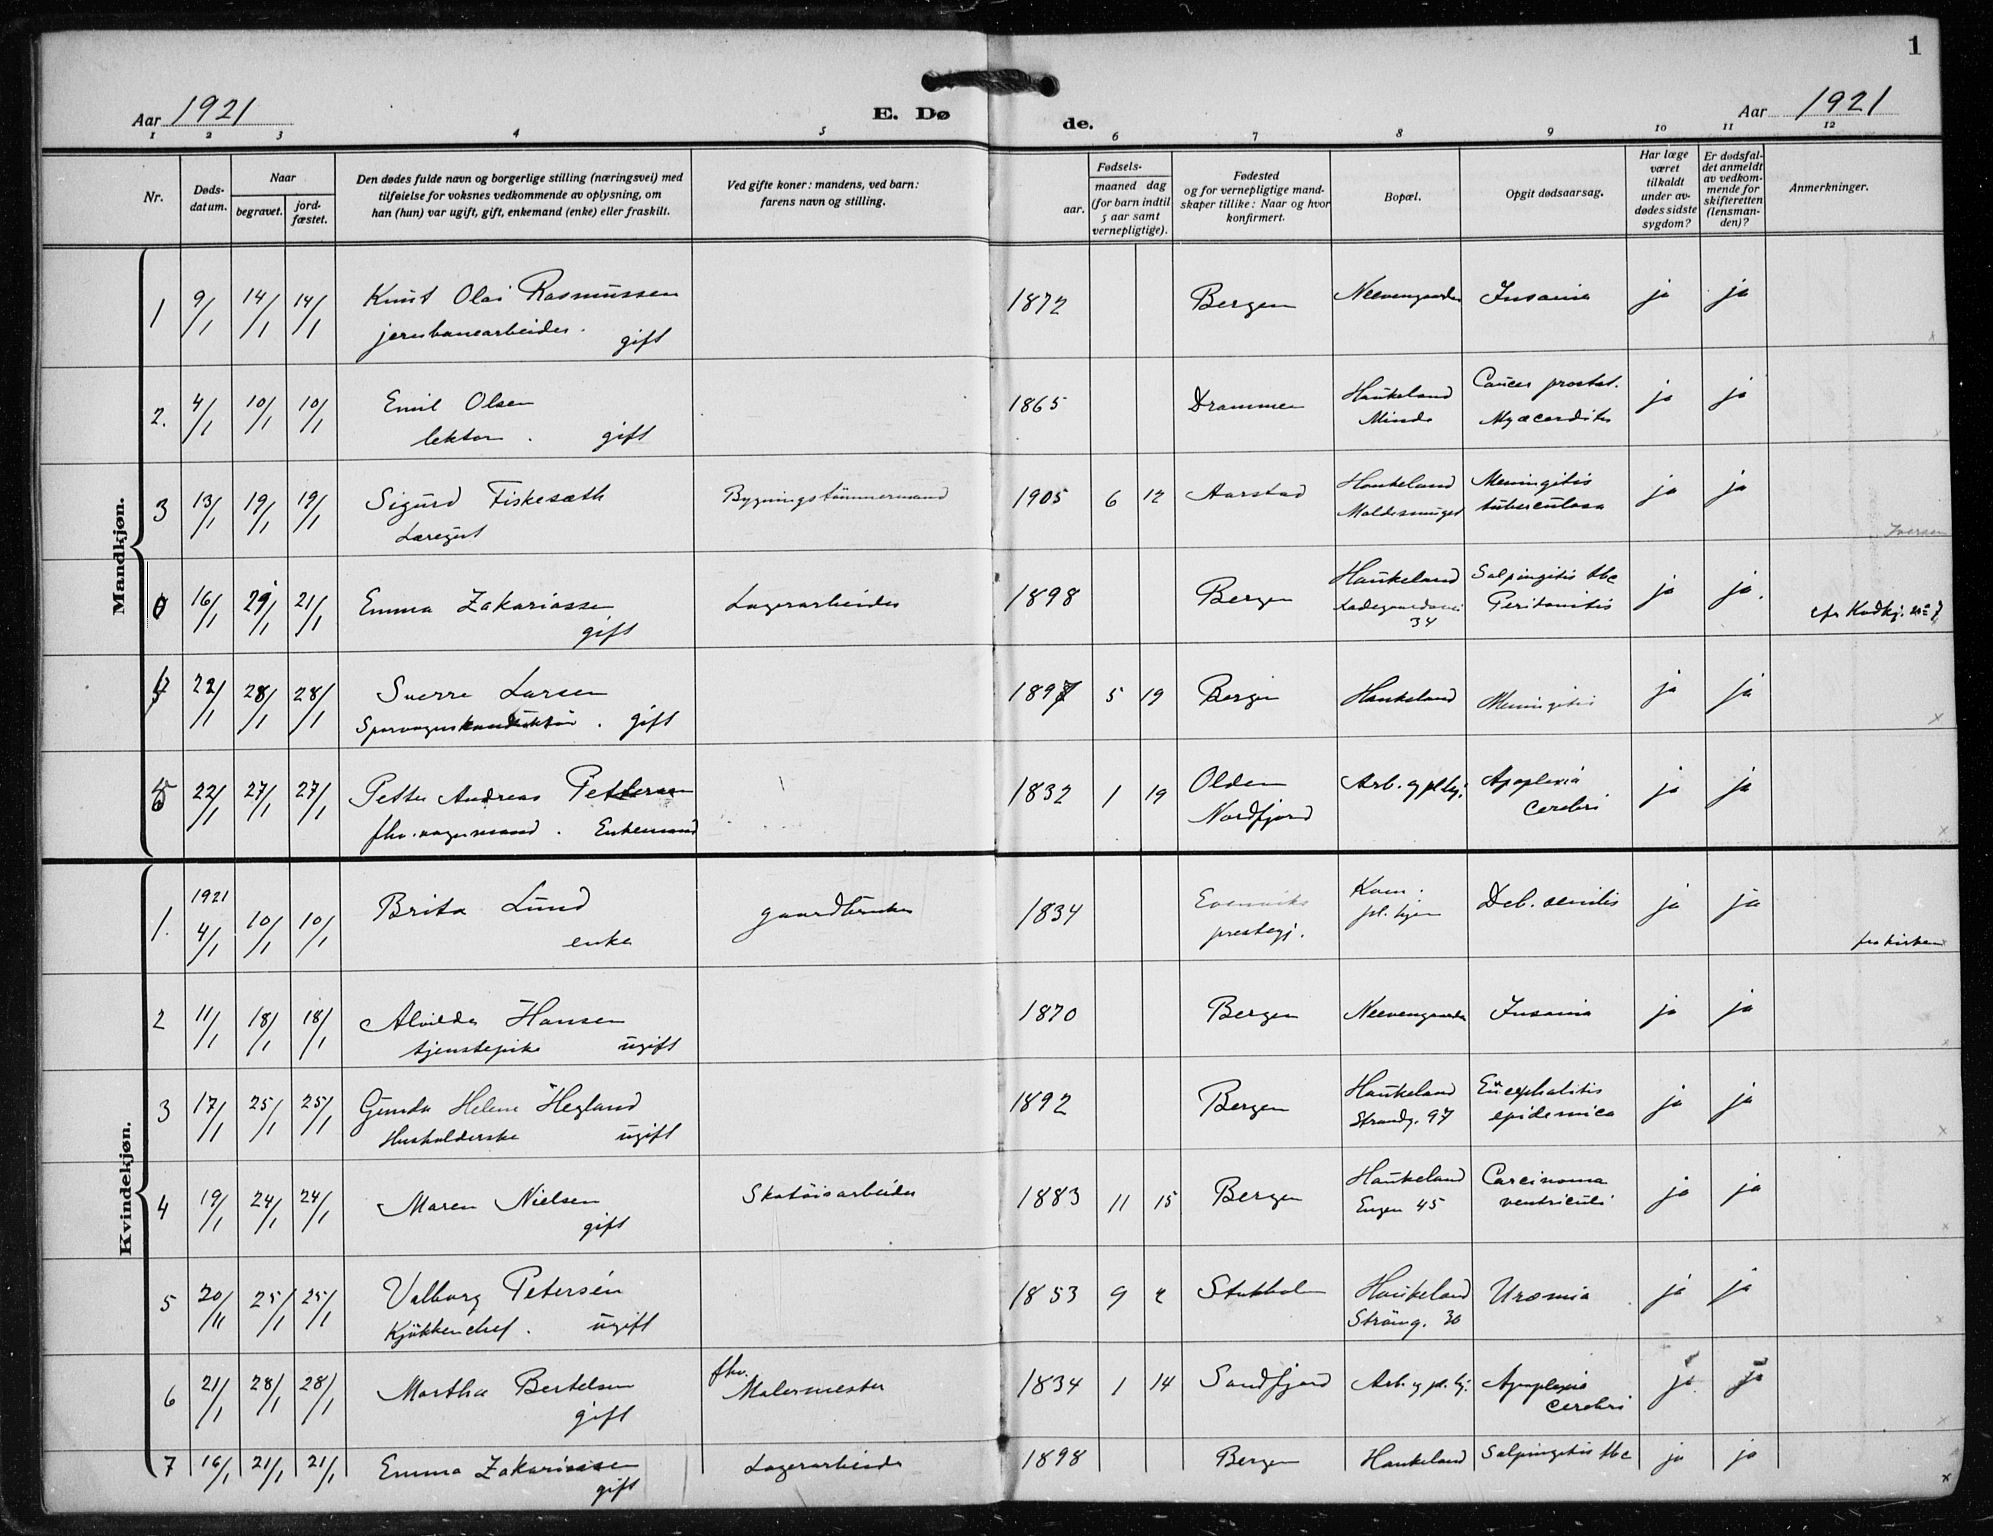 1
Aar 1921 E. Dø de. Aar 1921
1 2 3 4 5 6 7 8 9 10 11 12
Nr. Døds-datum. Naar begravet. jord-fæstet. Den dødes fulde navn og borgerlige stilling (næringsvei) med tilføielse for voksnes vedkommende av oplysning, om han (hun) var ugift, gift, enkemand (enke) eller fraskilt. Ved gifte koner: mandens, ved barn: farens navn og stilling. Fødsels- aar. maaned dag (for barn indtil 5 aar samt vernepligtige). Fødested og for vernepligtige mandskaper tillike: Naar og hvor konfirmert. Bopæl. Opgit dødsaarsag. Har læge været tilkaldt under avdødes sidste sygdom? Er dødsfaldet anmeldt av vedkommende for skifteretten (lensmanden)? Anmerkninger.
Mandkjøn.
1 9/1 14/1 14/1 Knut Olai Rasmussen 1872 Bergen Neevengaarden Insania ja ja
jernbanearbeider. gift
2. 4/1 10/1 10/1 Emil Olsen 1865 Drammen Haukeland Cancer prostat. ja ja
lektor. gift Minde Myocarditis
3 13/1 19/1 19/1 Sigurd Fiskesæth Bygningstømmermand 1905 6 12 Aarstad Haukeland Meningitis ja ja
Læregut tuberculosa
Iversen
16/1 21/1 21/1 Emma Zakariassen Lagerarbeider 1898 Bergen Haukeland Salpingitis tbc ja ja.
gift 34 Peritonitis
22/1 28/1 28/1 Sverre Larsen 1897 5 19 Bergen Haukeland Meningitis ja ja
Sporvognskonduktør. gift
22/1 27/1 27/1 Petter Andreas Pettersen 1832 1 19 Olden Arb. og plhj. Apoplexia ja ja
fhv. vognmand. Enkemand Nordfjord cerebri
Kvindekjøn.
1921
1. 4/1 10/1 10/1 Brita Lund gaardbruker 1834 Evenviks Kom. Deb. senilis ja ja
enke prestegj. pl. hjem
fra kirken
2 11/1 18/1 18/1 Alvilda Hansen 1870 Bergen Neevengaarden Insania ja ja
tjenstepike ugift
3 17/1 25/1 25/1 Gunda Helene Hegland 1892 Bergen Haukeland Encephalitis ja ja
Husholderske ugift Strandg. 97 epidemica
4 19/1 24/1 24/1 Maren Nielsen Skotøisarbeider 1883 11 15 Bergen Haukeland Carcinoma ja ja
gift Engen 45 ventriculi
5 20/11 25/1 25/1 Valborg Petersén 1853 9 2 Stokholm Haukeland Uræmia ja ja
Kjøkkenchef. ugift 30
6 21/1 28/1 28/1 Martha Bertelsen fhv. Malermester 1834 1 14 Sandfjord Arb. og pl. hj. Apoplexia ja ja
gift cerebri
7 16/1 21/1 21/1 Emma Zakariassen Lagerarbeider 1898 Bergen Haukeland Salpingitis tbc ja ja
gift